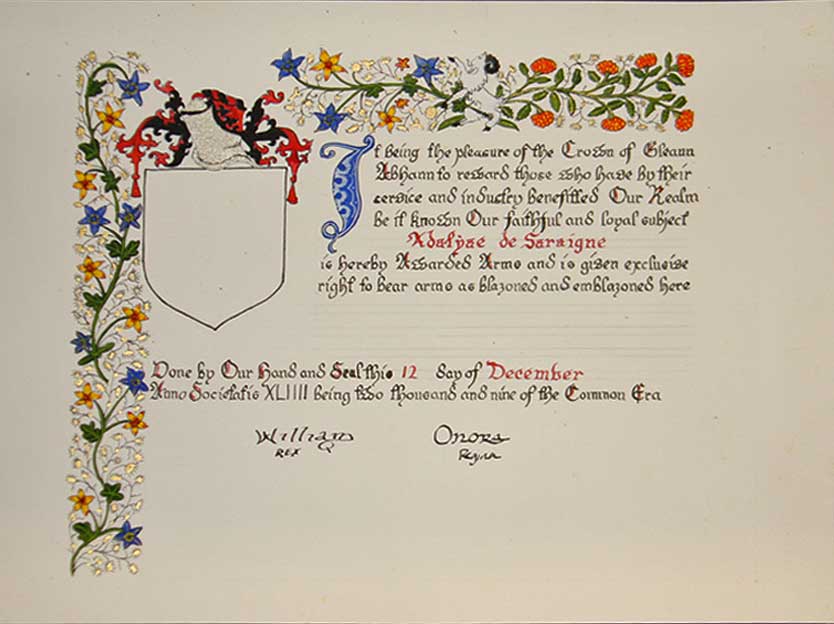 It being the pleasure of the Crown of Gleann
Abhann to reward those who have by their
service and industry benefitted Our Realm
be it known Our faithful and loyal subject
Adalyse de Saraigne
is hereby Awarded Arms and is given exclusive
right to bear arms as blazoned and emblazoned here
Done by Our Hand and Seal this 12 day of December
Anno Societatis XLIIII being two thousand and nine of the Common Era
William Onora
REX Regina